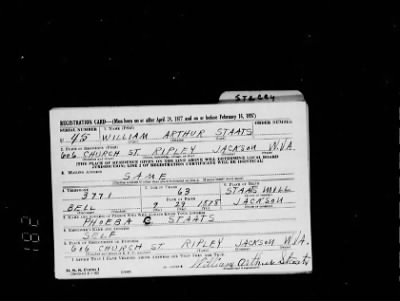 STACEY
REGISTRATION CARD—(Men born on or after April 28, 1877 and on or before February 16, 1897)
SERIAL NUMBER 1. NAME (Print) ORDER NUMBER
U 45 WILLIAM ARTHUR STAATS
2. PLACE OF RESIDENCE (Print)
606 CHURCH ST. RIPLEY JACKSON W.VA
[THE PLACE OF RESIDENCE GIVEN ON THE LINE ABOVE WILL DETERMINE LOCAL BOARD
JURISDICTION; LINE 2 OF REGISTRATION CERTIFICATE WILL BE IDENTICAL]
3. MAILING ADDRESS
SAME
4. TELEPHONE 5. AGE IN YEARS 6. PLACE OF BIRTH
3771 63 STAATS MILL
DATE OF BIRTH
BELL 9 29 1878 JACKSON
7. NAME AND ADDRESS OF PERSON WHO WILL ALWAYS KNOW YOUR ADDRESS
PHOEBA C STAATS
8. EMPLOYER'S NAME AND ADDRESS
SELF
9. PLACE OF EMPLOYMENT OR BUSINESS
606 CHURCH ST RIPLEY JACKSON W.VA.
I AFFIRM THAT I HAVE VERIFIED ABOVE ANSWERS AND THAT THEY ARE TRUE.
William Arthur Staats
D. S. S. Form 1
182